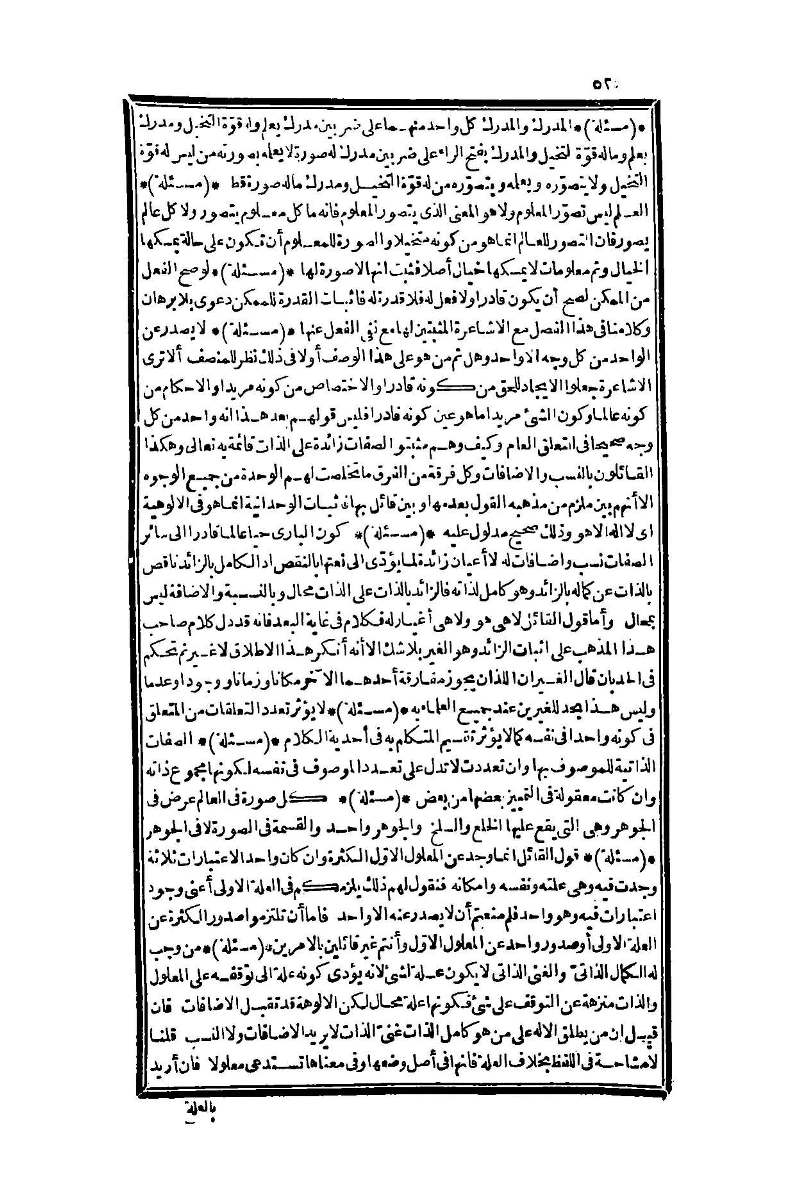 ٥٢
*(مسئلة)* المدرك والمدرك كل واحد منهما على ضربين مدرك يعلم وله قوة التخيل ومدرك
يعلم وماله قوة التخيل والمدرك بفتح الراء على ضربين مدرك له صورة لا يعلمه بصورته من ليس له قوة
التخيل ولا يتصوره ويعلمه ويتصوره من له قوة التخيل ومدرك ماله صورة فقط *(مسئلة)*
العلم ليس تصور المعلوم ولا هو المعنى الذى يتصور المعلوم فانه ما كل معلوم يتصور ولا كل عالم
يصور فان التصور للعالم انما هو من كونه متخيلا والصورة للمعلوم أن تكون على حالة يمسكها
الخيال وثم معلومات لا يمسكها خيال أصلا فثبت انها لا صورة لها *(مسئلة)* لو صح الفعل
من الممكن لصح أن يكون قادرا ولا فعل له فلا قدرة له فاثبات القدرة للممكن دعوى بلا برهان
وكلامنا فى هذا الفصل مع الاشاعرة المثبتين لها مع نفى الفعل عنها *(مسئلة)* لا يصدر عن
الواحد من كل وجه الا واحد وهل ثم من هو على هذا الوصف أولا فى ذلك نظر للمنصف ألا ترى
الاشاعرة جعلوا الايجاد للحق من كونه قادرا والاختصاص من كونه مريدا والاحكام من
كونه عالما وكون الشئ مريدا ما هو عين كونه قادرا فليس قولهم بعد هذا انه واحد من كل
وجه صحيحا فى التعلق العام وكيف وهم مثبتو الصفات زائدة على الذات قائمة به تعالى وهكذا
القائلون بالنسب والاضافات وكل فرقة من الفرق ما تخلصت لهم الوحدة من جميع الوجوه
الا أنهم بين ملزم من مذهبه القول بعدمها وبين قائل بها فاثبات الوحدانية انما هو فى الالوهية
اى لا اله الا هو وذلك صحيح مدلول عليه *(مسئلة)* كون البارى حيا عالما قادرا الى سائر
الصفات نسب واضافات له لا أعيان زائدة لما يؤدى الى نعتها بالنقص اذ الكامل بالزائد ناقص
بالذات عن كماله بالزائد وهو كامل لذاته فالزائد بالذات على الذات محال وبالنسبة والاضافة ليس
بمحال وأما قول القائل لا هى هو ولا هى أغيار له فكلام فى غاية البعد فانه قد دل كلام صاحب
هذا المذهب على اثبات الزائد وهو الغير بلا شك الا أنه أنكر هذا الاطلاق لا غير ثم تحكم
فى الحد بان قال الغيران اللذان يجوز مفارقة أحدهما الآخر مكانا وزمانا ووجودا وعدما
وليس هذا بحد للغيرين عند جميع العلماء به *(مسئلة)* لا يؤثر تعدد التعلقات من المتعلق
فى كونه واحدا فى نفسه كما لا يؤثر تقسيم المتكلم به فى أحدية الكلام *(مسئلة)* الصفات
الذاتية للموصوف بها وان تعددت لا تدل على تعدد الموصوف فى نفسه لكونها مجموع ذاته
وان كانت معقولة فى التمييز بعضها من بعض *(مسئلة)* كل صورة فى العالم عرض فى
الجوهر وهى التى يقع عليها الخلع والسلخ والجوهر واحد والقسمة فى الصورة لا فى الجوهر
*(مسئلة)* قول القائل انما وجد عن المعلول الاول الكثرة وان كان واحدا لاعتبارات ثلاثة
وجدت فيه وهى علته ونفسه وامكانه فنقول لهم ذلك يلزمكم فى العلة الاولى أعنى وجود
اعتبارات فيه وهو واحد فلم منعتم أن لا يصدر عنه الا واحد فاما أن تلتزموا صدور الكثرة عن
العلة الاولى أو صدور واحد عن المعلول الاول وأنتم غير قائلين بالامرين *(مسئلة)* من وجب
له الكمال الذاتى والغنى الذاتى لا يكون علة لشئ لانه يؤدى كونه علة الى توقفه على المعلول
والذات منزهة عن التوقف على شئ فكونها علة محال لكن الالوهة قد تقبل الاضافات فان
قيل ان من يطلق الاله على من هو كامل الذات غنى الذات لا يريد الاضافات ولا النسب قلنا
لا مشاحة فى اللفظ بخلاف العلة فانها فى أصل وضعها وفى معناها تستدعى معلولا فان أريد
بالعلة